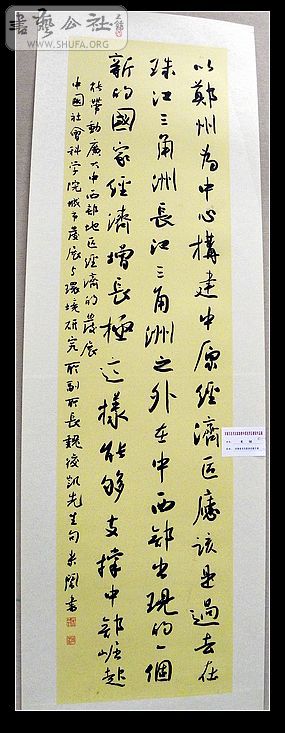 書藝公社
www.SHUFA.ORG
以鄭州為中心構建中原經濟區應該是過去在
珠江三角洲長江三角洲之外在中西部出現的一個
新的國家經濟增長極這樣能够支撐中部崛起
能帶動廣大中西部地區經濟的發展
中國社會科学院城市發展与環境研究所副所長魏後凱先生句米閙書